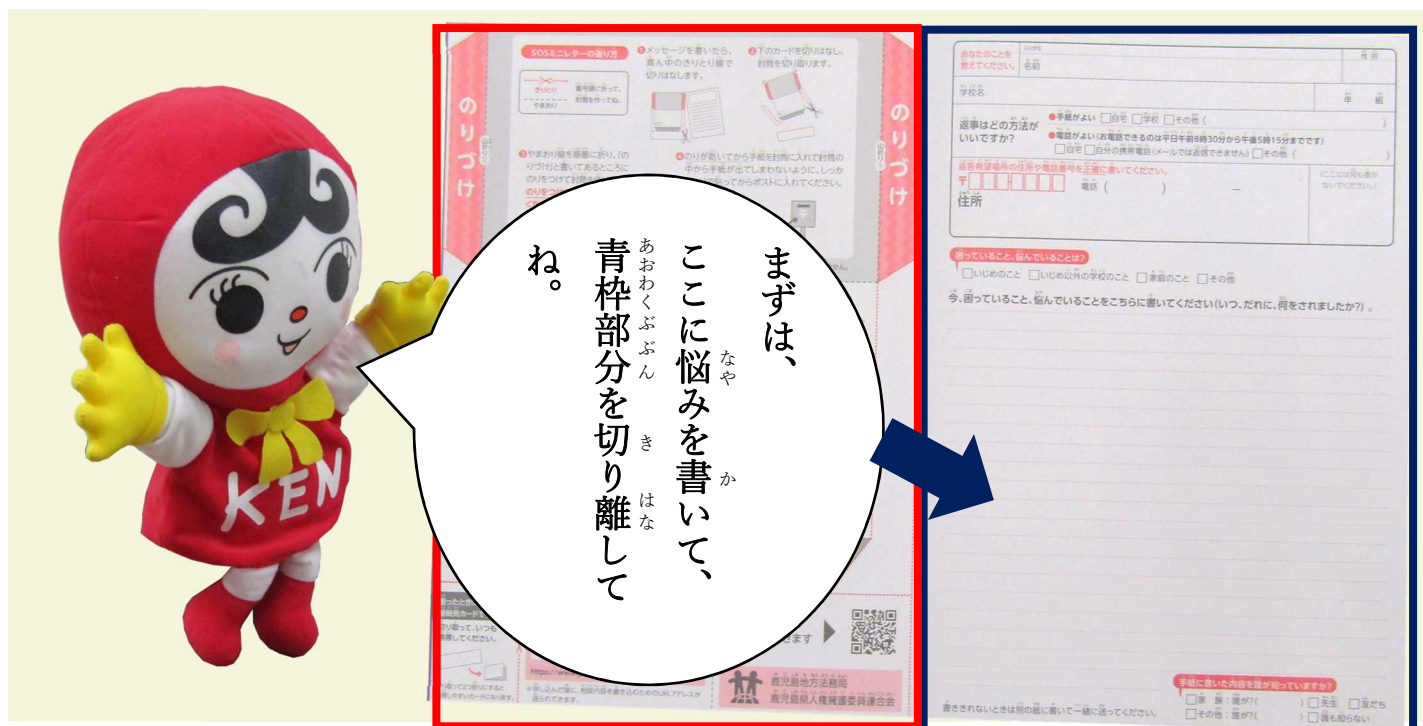 まずは、
ここに悩みを書いて、
青枠部分を切り離して
ね。
なや
か
あおわくぶぶん
き
はな
KEN
のりづけ
のりづけ
SOSミニレターの送り方
きりとり
やまおり
番号順に折って、
封筒を作ってね。
❶メッセージを書いたら、
真ん中のきりとり線で
切りはなします。
❷下のカードを切りはなし、
封筒を切り取ります。
❸やまおり線を順番に折り、「の
りづけ」と書いてあるところに
❹のりが乾いてから手紙を封筒に入れて封筒の
中から手紙が出てしまわないように、しっか
ってからポストに入れてください。
きます
鹿児島地方法務局
鹿児島県人権擁護委員連合会
あなたのことを
教えてください。
名前
学校名
年 組
返事はどの方法が
いいですか?
●手紙がよい □自宅 □学校 □その他 ( )
●電話がよい(お電話できるのは平日午前8時30分から午後5時15分までです)
□自宅 □自分の携帯電話(メールでは返信できません) □その他 ( )
返答希望場所の住所や電話番号を正確に書いてください。
〒
電話 ( ) −
住所
(ここには何も書か
ないでください。)
困っていること、悩んでいることは?
□いじめのこと □いじめ以外の学校のこと □家庭のこと □その他
今、困っていること、悩んでいることをこちらに書いてください(いつ、だれに、何をされましたか?)。
手紙に書いた内容を誰が知っていますか?
□家 族:誰が?( ) □先生 □友だち
□その他:誰が?( ) □誰も知らない
書ききれないときは別の紙に書いて一緒に送ってください。